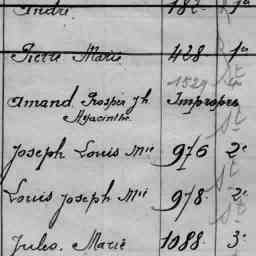 André. 182. 1a
Pierre Marie 438 1a
1529
Amand Prosper Jh Impropre
Hyacinthe
Joseph Louis Mie 976 2e
Louis Joseph Mie 978. 2e
Jules. Marie 1088. 3e